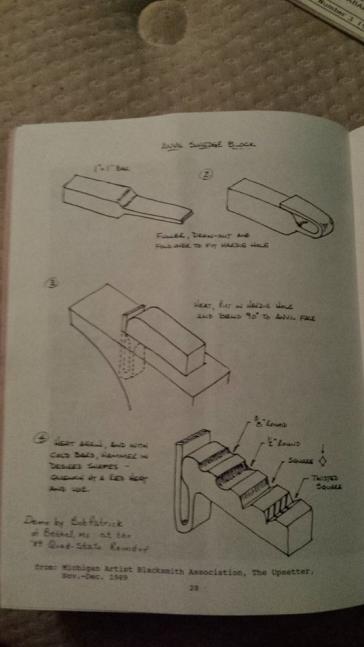 Number 3
ANVIL SWEDGE BLOCK
1"x1" BAR
2
FULLER, DRAW-OUT AND
FOLD OVER TO FIT HARDIE HOLE
3
HEAT, PUT IN HARDIE HOLE
AND BEND 90° TO ANVIL FACE
4
HEAT AGAIN, AND WITH
COLD BARS, HAMMER IN
DESIRED SHAPES -
QUENCH AT A RED HEAT
AND USE.
3/8" ROUND
1/2" ROUND
SQUARE
TWISTED
SQUARE
Demo by Bob Patrick
at Bethel, Mo at the
'89 Quad-State Roundup
from: Michigan Artist Blacksmith Association, The Upsetter,
Nov.-Dec. 1989
28